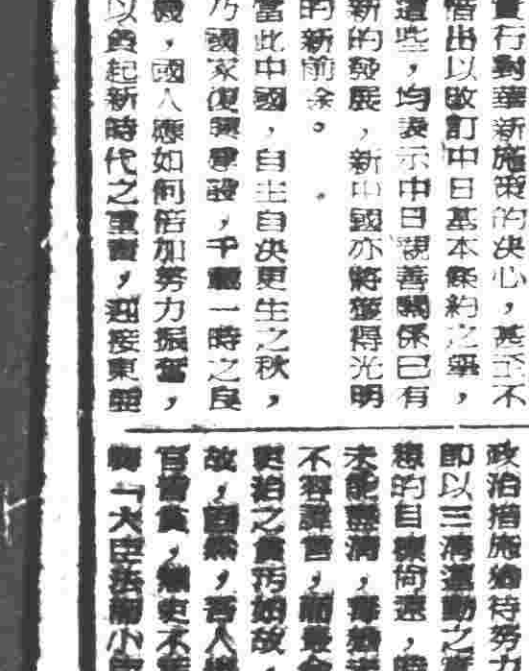 實行對華新施策的決心，甚至不
惜出以改訂中日基本條約之舉，
這些，均表示中日親善關係已有
新的發展，新中國亦將獲得光明
的新前途。
當此中國，自主自決更生之秋，
乃國家復興建設，千載一時之良
機，國人應如何倍加努力振奮，
以負起新時代之重責，迎接東亞
政治措施猶待努力
即以三清運動之
想的自標尚遠，
未能盡清，
不容諱言，而最
吏治之貪污如故，
故，固然，吾人
官皆貪，
「大法小